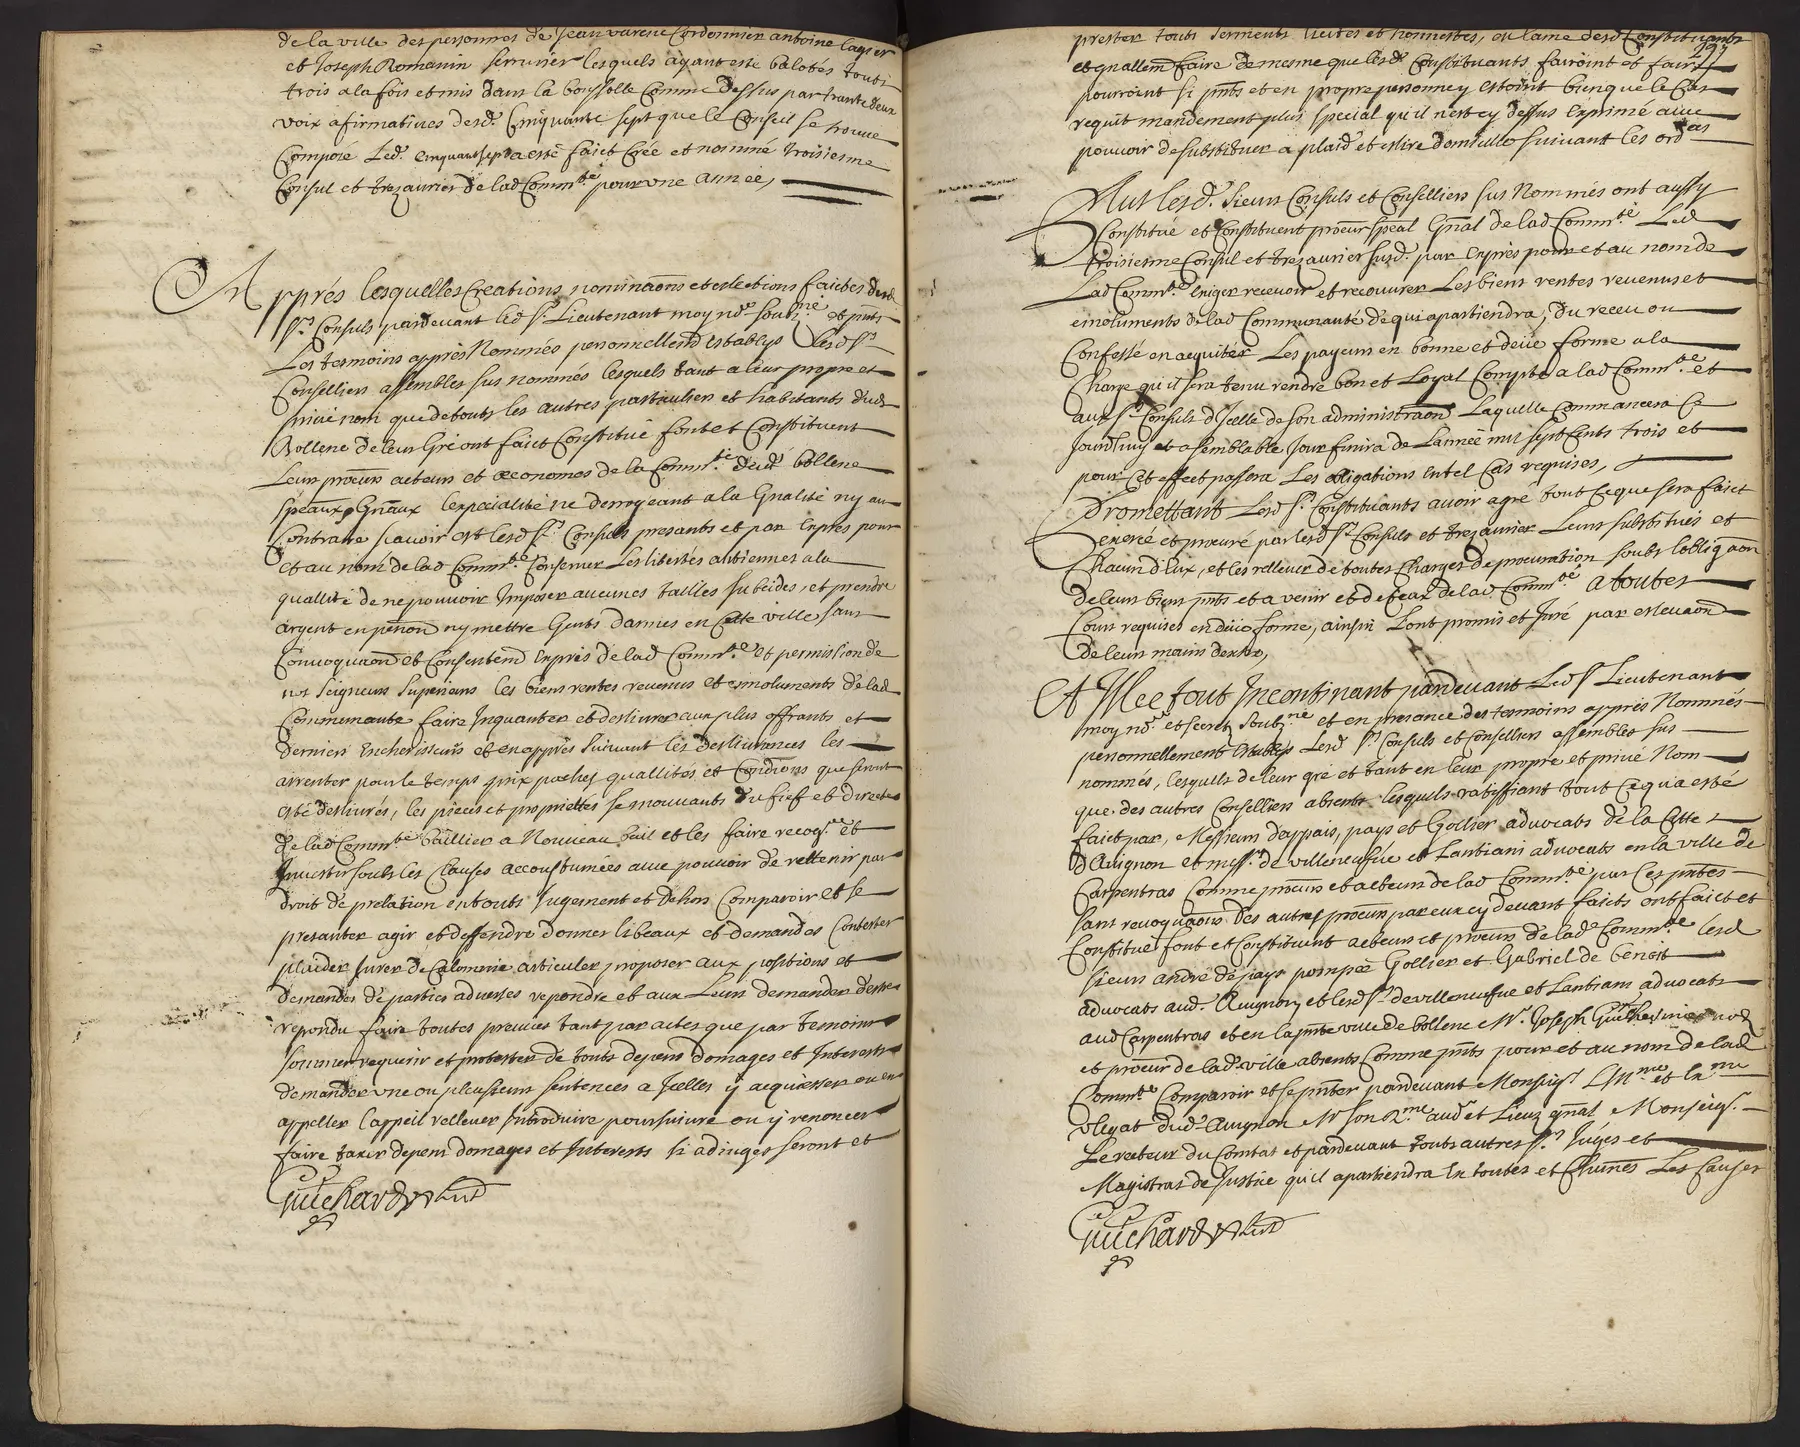 de la ville des personnes de Jean Varene Cordonnier antoine Layier
et Joseph Romanin serrurier lesquels ayant esté balotés touts
trois a la fois et mis dans la boussolle Comme dessus par trante deux
voix afirmatives desd. Cinquante sept que le Conseil se trouve
Composé Led. a esté faict Créé et nommé troisiesme
Consul et trezaurier de lad Comm.té pour une année,
Apprés lesquelles Creations nominaons et eslections faictes desd
s.rs Consuls pardevant led s.r Lieutenant moy no.re soubz.né et pnts
Les tesmoins apprès Nommés personnellemt establys Lesd s.rs
Conselliers assemblés sus nommés lesquels tant a leur propre et
privé nom que de touts les autres particuliers et habitants dud
Bollene de leur Gré ont faict Constitué font et Constituent
Leur procurs acteurs et œconomes de la Comm.té dud bollene
speaux & Gnaux Lespecialité ne derrogeant a la Gnalité ny au
Contraire scavoir est lesd s.rs Consuls presants et par Exprès pour
et au nom de lad Comm.té Conserver Les libertés antiennes a la
quallité de ne pouvoir Imposer aucunes tailles subcides, et prendre
argent en penon ny mettre Gents darmes en Cette ville sans
Convoquaon et Consentemt Exprés de lad Comm.té et permission de
nos seigneurs superieurs les biens rentes revenus et esmoluments de lad
Communauté faire Inquanter et deslivrer aux plus offrants et
derniers Encherisseurs et en apprès suivant les deslivrances les
arrenter pour le temps prix paches quallités et Condions que seront
esté deslivrés, les pièces et proprietés se mouvants du fief et directe
de lad Comm.té baillier a Nouveau bail et les faire recog.re et
Investir soubs les Clauses accoustumées avec pouvoir de rettenir par
droit de prelation en touts Jugement et dehors Comparoir et se
presanter agir et deffendre donner libeaux et demandes Contester
plaider Jurer de Calomnie articuler proposer aux positions et
demandes de parties adverses repondre et aux Leurs demander destre
repondu faire toutes preuves tant par actes que par tesmoins
sommer requerir et protester de touts depens domages et Interests
demander une ou plusieurs sentences a Jcelles y acquiesser ou en
appeller lappeil rellever Introduire poursuivre ou y renoncer
faire taxer depens domages et Interests si adiuges seront et
Guichard
prester touts serments licites et honnestes, en lame desd Constituants
et gnallemt faire de mesme que lesd. Constituants fairoint et faire
pourroint si pnts et en propre personne y estoint bien que le Cas
requit mandement plus special qu'il n'est cy dessus Exprimé avec
pouvoir de substituer a plaid et eslire domicille suivant les ord.es
Plus lesd. sieurs Consuls et Conselliers sus Nommés ont aussy
Constitué et Constituent procur speal Gnal de lad Comm.té Led
troisiesme Consul et trezaurier susd. par Exprès pour et au nom de
Lad Comm.té Exiger recevoir et recouvrer Les biens rentes revenus et
emoluments de lad Communauté de qui apartiendra, du receu ou
Confessé en acquiter Les payeurs en bonne et deüe forme a la
Charge qu'il sera tenu rendre bon et Loyal Compte a lad Comm.té et
aux s.rs Consuls d'Jcelle de son administraon Laquelle Commancera Ce
Jourdhuy et a semblable Jour finira de Lannée mil sept Cents trois et
pour Cet effect passera Les obligations en tel Cas requises,
Promettant Lesd s.rs Constituants avoir agré tout Ce que sera faict
Exercé et procuré par lesd s.rs Consuls et trezaurier Leurs substitués et
Chacun d'Eux, et les rellever de toutes Charges de procuration soubs lobligaon
de leurs biens pnts et a venir et de Ceux de lad Comm.té a toutes
Cours requises en düe forme, ainsin L'ont promis et Juré par eslevaon
de leurs mains dextre,
Et Illec tout Incontinant pardevant Led s.r Lieutenant
moy no.re et secret. soubz.né et en presance des tesmoins apprès Nommés
personnellement Establys Lesd s.rs Consuls et Conselliers assemblés sus
nommés, lesquels de leur gré et tant en leur propre et privé Nom
que des autres Conselliers absents lesquels ratiffiant tout Ce qu'a esté
faict par, Messieurs dappais, pays et Gollier advocats de la Citté
d'Avignon et mess.rs de villeneufve et Lantiani advocats en la ville de
Carpentras Comme procurs et acteurs de lad Comm.té par Ces pntes
sans revoquaon des autres procurs par eux cy devant faicts ont faict et
Constitué font et Constituent acteurs et procurs de lad Comm.té lesd
sieurs andré de pays pompée Gollier et Gabriel de benoit
advocats aud. Avignon et lesd s.rs de villeneufve et Lantiani advocats
aud Carpentras et en la pnte ville de bollene M.r Joseph Guilhermier no.re
et procur de lad. ville absents Comme pnts pour et au nom de lad
Comm.té Comparoir et se pnter pardevant Monseig.r
vilegat dud. Avignon M.r son aud.r et Lieut. gnal Monseig.r
Le recteur du Comtat et pardevant touts autres s.rs Juges et
Magistrats de Justice qu'il apartiendra En toutes et Chunes Les Causes
Guichard